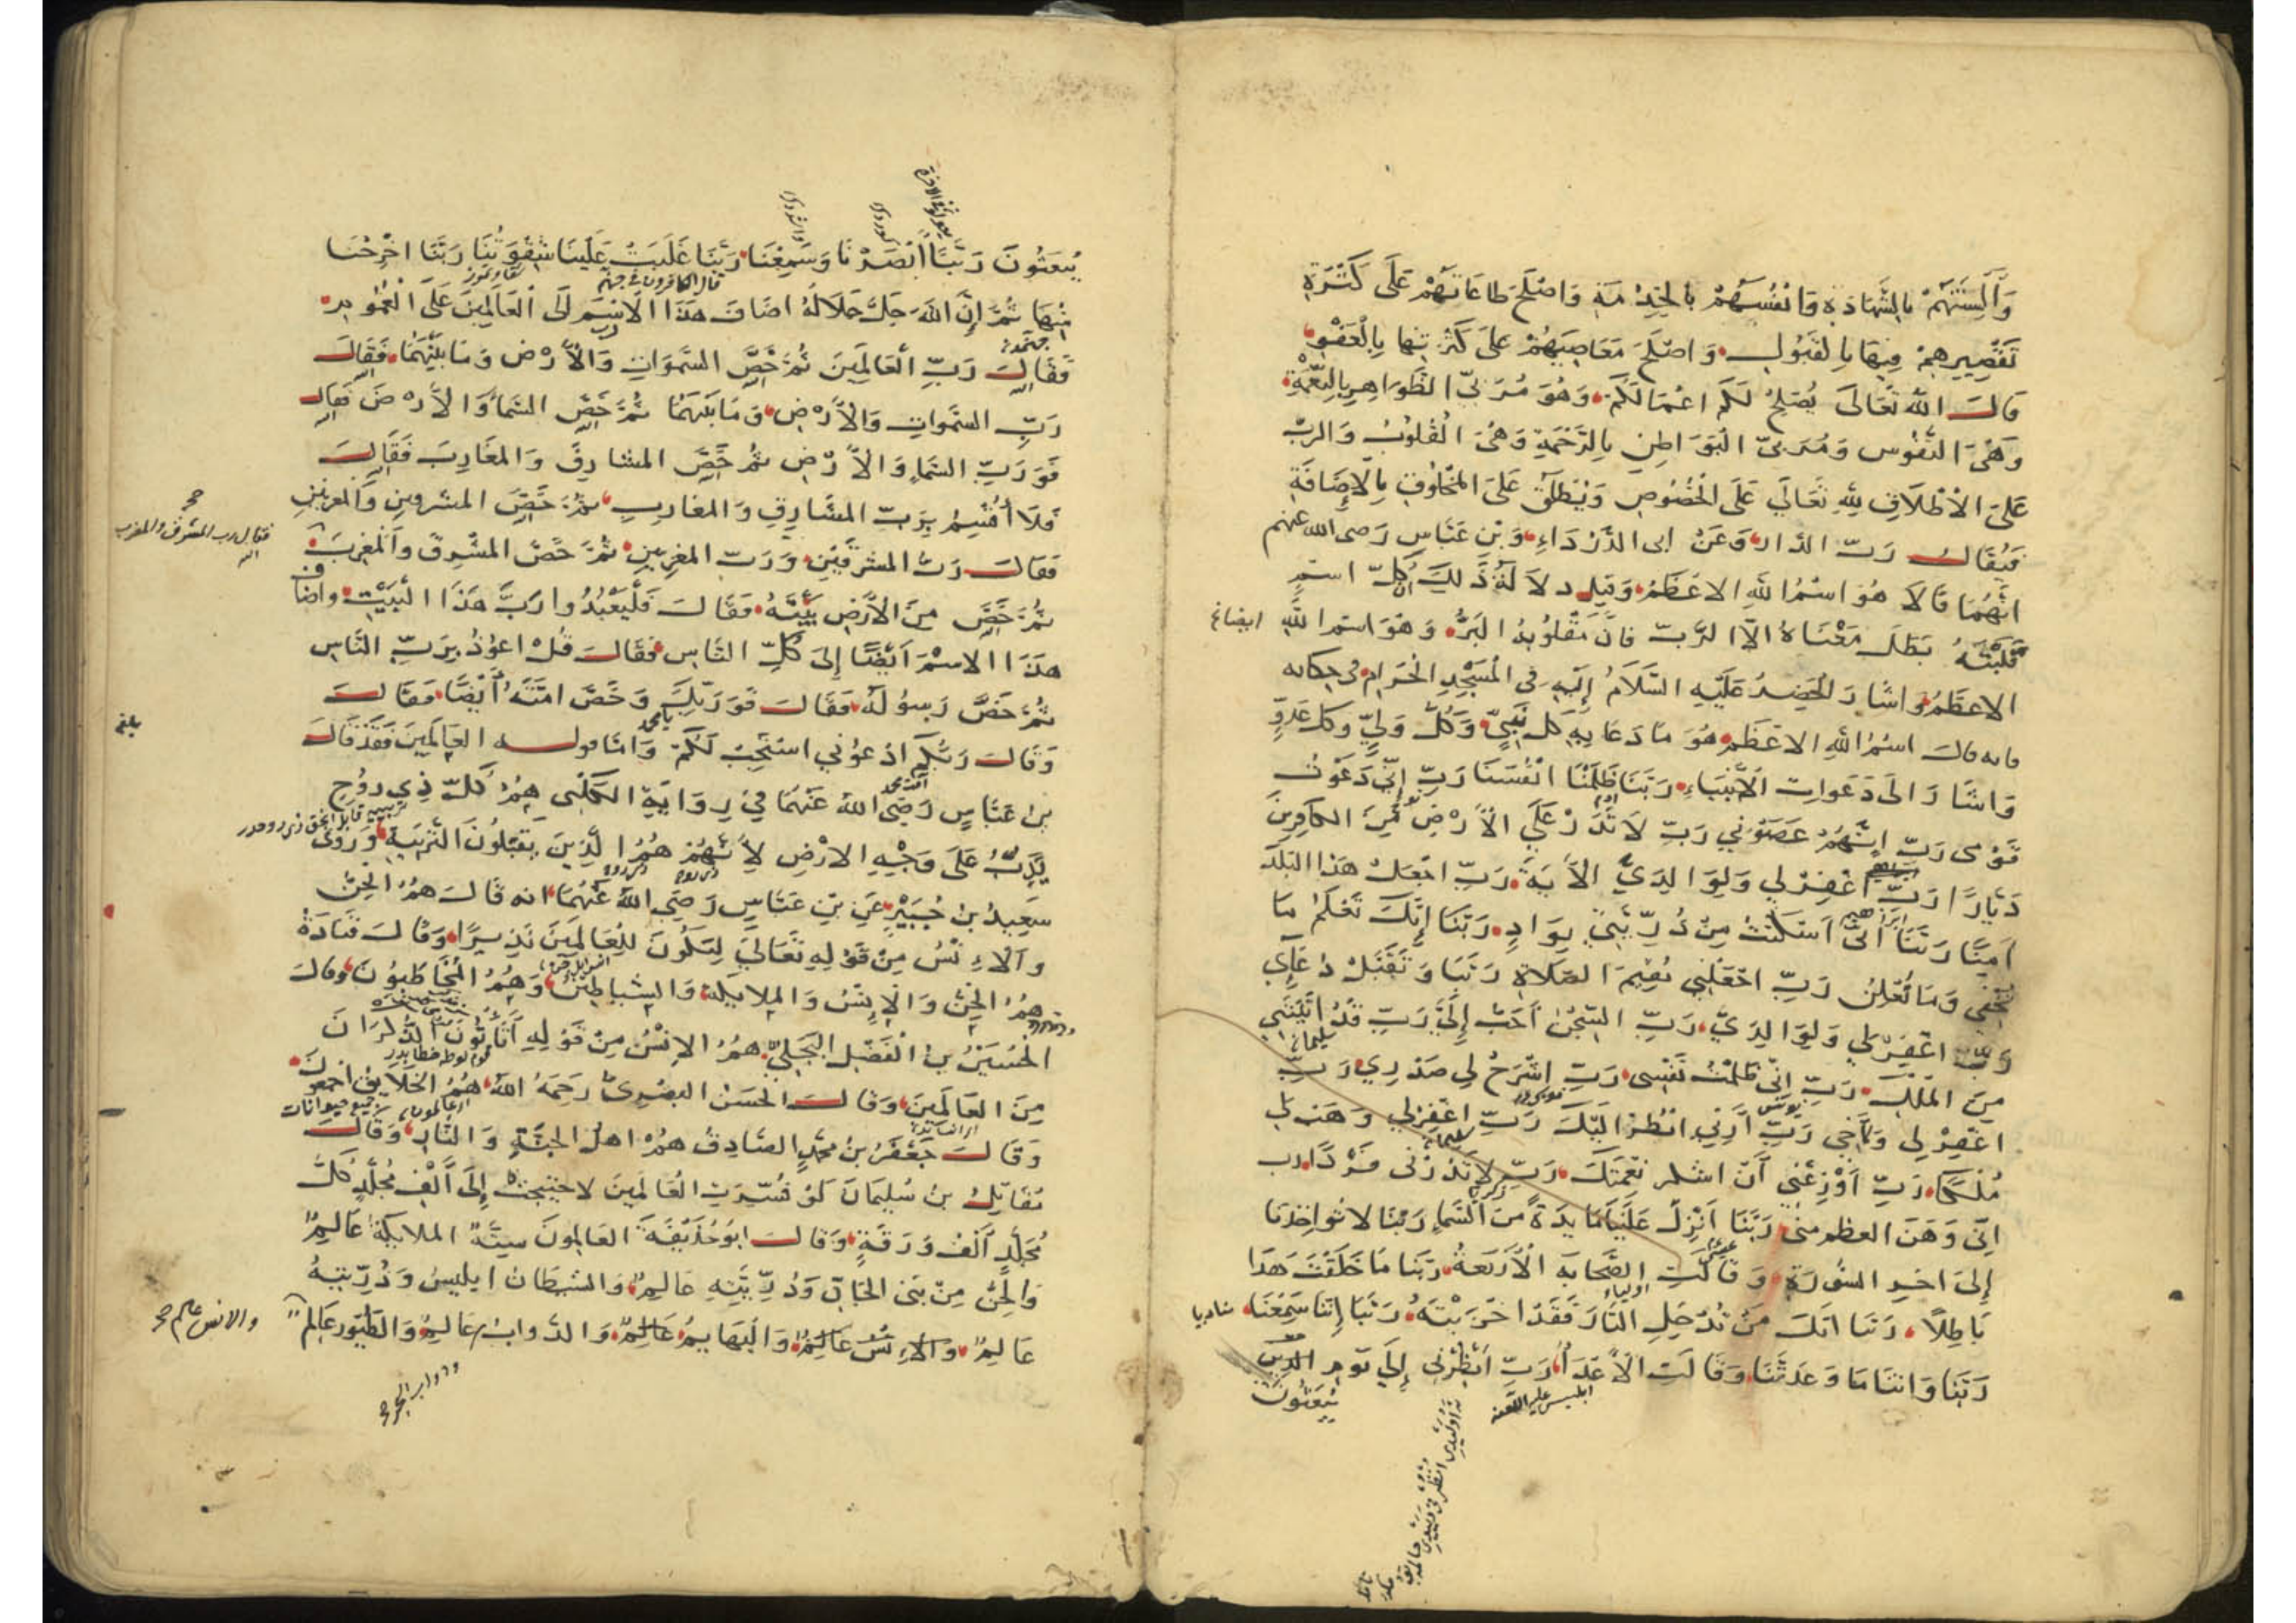 وَأَلْسِنَتَهُمْ بِالشَّهَادَةِ وَانْفُسَهُمْ بِالْخِدْمَةِ وَاصْلَحَ طَاعَاتَهُمْ عَلَى كَثْرَةِ
تَقْصِيرِهِمْ فِيهَا بِالْقَبُولِ وَاصْلَحَ مَعَاصِيَهُمْ عَلَى كَثْرَتِهَا بِالْعَفْوِ
قَالَ اللّٰه تَعَالَى يُصْلِحْ لَكُمْ اعْمَالَكُمْ وَهُوَ مُرَبِّي الظَّوَاهِرِ بِالنِّعْمَةِ
وَهْيَ النُّفُوس وَمُرَبِّي الْبَوَاطِنِ بِالرَّحْمَةِ وَهْيَ الْقُلُوبُ وَالربّ
عَلَى الْاطْلَاقِ لِلّٰهِ تَعَالَي عَلَى الْخُصُوصِ وَيُنْطَلَقُ عَلَى الْمَخْلُوقِ بِالْاِضَافَةِ
فَيُقَالُ رَبّ الدَّارِ وَعَنْ ابى الدَّرْدَاءِ وَبْنِ عَبَّاسٍ رَضى الله عنهم
انَّهُمَا قَالَا هُوَ اسْمُ اللّٰهِ الاعْظَمُ وَقِيلَ دلَالَةُ ذَلِكَ اَنَّ كُلّ اسْمٍ
قَلَبْتَهُ بَطَلَ مَعْنَاهُ الَّا الرَّبّ فَانَّ مَقْلُوبُهُ الْبَرُّ وَهُوَ اسْم اللّٰهِ ايضا
الاعْظَمُ وَاشَارَ الْخَضِرُ عَلَيْهِ السَّلَامُ إِلَيْهِ فِي الْمَسْجِدِ الْحَرَامِ فى حكايه
فانه قال اسْمُ اللّٰهِ الاعْظَم هُوَ مَا دَعَا بِهِ كلّ نَبِيٍّ وَكُلّ وَلِيٍّ وَكل عَدُوٍّ
وَاشَارَ الَى دَعَوَاتِ الْأَنْبِيَاءِ رَبَّنَا ظَلَمْنَا انْفُسَنَا رَبِّ إِنّي دَعَوْتُ
قَوْمى رَبّ إِنَّهُمْ عَصَوْني رَبّ لَا تَذَرْ عَلَي الْأَرْضِ مِنَ الكَافِرِينَ
دَيَّارًا رَبّ اغْفِرْ لي وَلِوَالِدَيَّ الْأَيَةَ رَبّ اجْعَلْ هَذَا الْبَلَدَ
اٰمِنًا رَبَّنَا انّي اسْكَنْتُ مِنْ ذُرِّيَّتِي بِوَادٍ رَبَّنَا إِنَّكَ تَعْلَمُ مَا
نُخْفِي وَمَا نُعْلِنُ رَبّ اجْعَلْنِي مُقِيمَ الصَّلَاةِ رَبَّنَا وَتَقَبَّلْ دُعَاءِي
رَبّ اغْفِرْ لي وَلِوَالِدَيَّ رَبّ السِّجْنُ أَحَبّ إِلَيَّ رَبّ قَدْ اتَيْتَنِي
مِنَ الْمُلْكِ رَبّ انّي ظَلَمْتُ نَفْسى رَبّ اشْرَحْ لِي صَدْرِي رَبّ
اغْفِرْ لي وَلِأَخِي رَبّ أَرِني انْظُرْ الَيْكَ رَبّ اغْفِرْلِي وَهَبْ لِي
مُلْكًا رَبّ أَوْزِعْنِي أَنْ اشْكُر نعْمَتَكَ رَبّ لَا تَذَرْنى فَرْدًا رب
انّى وَهَنَ العظم منى رَبَّنَا أَنْزِلْ عَلَيْنَا مَائِدَةً مِنَ السَّمَاءِ رَبَّنَا لا تُوَاخِذْنَا
إِلَى اخِرِ السُّورَةِ وَقَالَتِ الصَّحَابَه الْأَرْبَعَةُ رَبَّنَا مَا خَلَقْتَ هَذَا
بَاطِلًا رَبَّنَا انَّكَ مَنْ تُدْخِلِ النَّارَ فَقَدْ اخْزَيْتَهُ رَبَّنَا إِنَّنَا سَمِعْنَا مناديا
رَبَّنَا وَاتِنَا مَا وَعَدْتَنَا وَقَالَتِ الْأَعْدَاُ رَبّ أَنْظِرْنِي إِلَى يَوْمِ الدين
ابليس عليه اللعنة
يُبْعَثُونَ
يُبْعَثُونَ رَبَّنَا أَبْصَرْنَا وَسَمِعْنَا رَبَّنَا غَلَبَتْ عَلَيْنَا شِقْوَتُنَا رَبَّنَا اخْرِجْنَا
قال الكافرون في جهنم
مِنْهَا ثُمَّ إِنَّ اللّٰهَ جَلَّ جَلَالُهُ اضَافَ هَذَا الْاِسْمَ الَى الْعَالَمِينَ عَلَى الْعُمُومِ
فَقَالَ رَبِّ الْعَالَمِينَ ثُمَّ خَصَّ السَّمَوَاتِ وَالْأَرْض وَمَا بَيْنَهُمَا فَقَالَ
رَبِّ السَّمَوَاتِ وَالْأَرْضِ وَمَا بَيْنَهُمَا ثُمَّ خَصَّ السَّمَاَ وَالْأَرْضَ فَقَالَ
فَوَرَبّ السَّمَاءِ وَالْأَرْضِ ثُمَّ خَصَّ المشَارِقَ وَالْمَغَارِبَ فَقَالَ
فَلَا أُقْسِمُ بِرَبّ المشَارِقِ وَالمغاربِ ثُمَّ خَصَّ المشرقين وَالمغربين
فَقَالَ رَبُّ المشرقَيْنِ وَرَبّ المغربينِ ثُمَّ خَصَّ المشْرِقَ وَالْمغرِبَ
فقال رب المشرق والمغرب
ثُمَّ خَصَّ مِنَ الْأَرْضِ بَيْتَهُ فَقَالَ فَلْيَعْبُدُوا رَبَّ هَذَا الْبَيْتِ وَاضاف
هَذَا الاسْمَ أَيْضًا إِلَى كُلّ النَّاسِ فَقَالَ قُلْ اعُوذُ بِرَبّ النَّاسِ
ثُمَّ خَصَّ رَسُولَهُ فَقَالَ فَوَرَبّكَ وَخَصَّ امَّتَهُ أَيْضًا فَقَالَ
بلغ
وَقَالَ رَبُّكُمُ ادْعُوني اسْتَجِبْ لَكُمْ وَامَّا قوله الْعَالَمِينَ فَقَدْ قَالَ
بن عَبَّاسٍ رَضِيَ اللّٰهُ عَنْهُمَا فِي رِوَايَةِ الْكَلْبى هِمْ كُلّ ذِي رُوحٍ
يَدِبُّ عَلَى وَجْهِ الارْضِ لِأَنَّهُمْ هُمُ الَّذِينَ يَقْبَلُونَ التَّرْبِيَةَ وَرَوَى
سَعِيدُ بْنُ جُبَيْرٍ عَنِ بْنِ عَبَّاسٍ رَضِيَ اللّٰهُ عَنْهُمَا انه قَالَ هُمُ الْجِنّ
وَالْاِنْسُ مِنْ قَوْلِهِ تَعَالَى لِيَكُونَ لِلْعَالَمِينَ نَذِيرًا وَقَالَ قَتَادَةُ
هُمُ الْجِنُّ وَالْاِنْسُ وَالْمَلَايِكَةُ وَالشَّيَاطِينُ وَهُمُ الْمُخَاطَبُونَ وَقَالَ
الْحُسَيْنُ بْنُ الْفَضْلِ الْبَجَلِيّ هُمُ الْاِنْسُ مِنْ قَوْلِهِ أَتَأْتُونَ الذُّكْرَانَ
قوم لوط
مِنَ الْعَالَمِينَ وَقَالَ الْحَسَنُ الْبَصْرِيُّ رَحِمَهُ اللّٰهُ هُمُ الْخَلَايِقُ اجْمَعُونَ
جميع حيوانات
وَقَالَ جَعْفَرُ بْنُ مُحَمَّدٍ الصَّادِقُ هُمْ اهْلُ الْجَنَّةِ وَالنَّارِ وَقَالَ
مُقَاتِلُ بْنُ سُلَيْمَانَ لَوْ فَسَّرتُ الْعَالَمِينَ لَاحْتِيجَتْ إِلَى أَلْفِ مُجَلَّدٍ كُلّ
مُجَلَّدٍ أَلْفُ وَرَقَةٍ وَقَالَ ابُو حُذَيْفَةَ الْعَالَمُونَ سِتَّةٌ الْمَلَايِكَةُ عَالَمٌ
وَالْجِنُّ مِنْ بَنى الْجَانّ وَذُرِّيَّتِهِ عَالَمٌ وَالشَّيْطَانُ ابليسُ وَذُرِّيَّتهُ
عَالَمٌ وَالْاِنْسُ عَالَمٌ وَالْبَهَايِمُ عَالَمٌ وَالدَّوابُّ عَالَمٌ وَالطُّيُورُ عَالَمٌ
والانس عالم
ودواب البحر